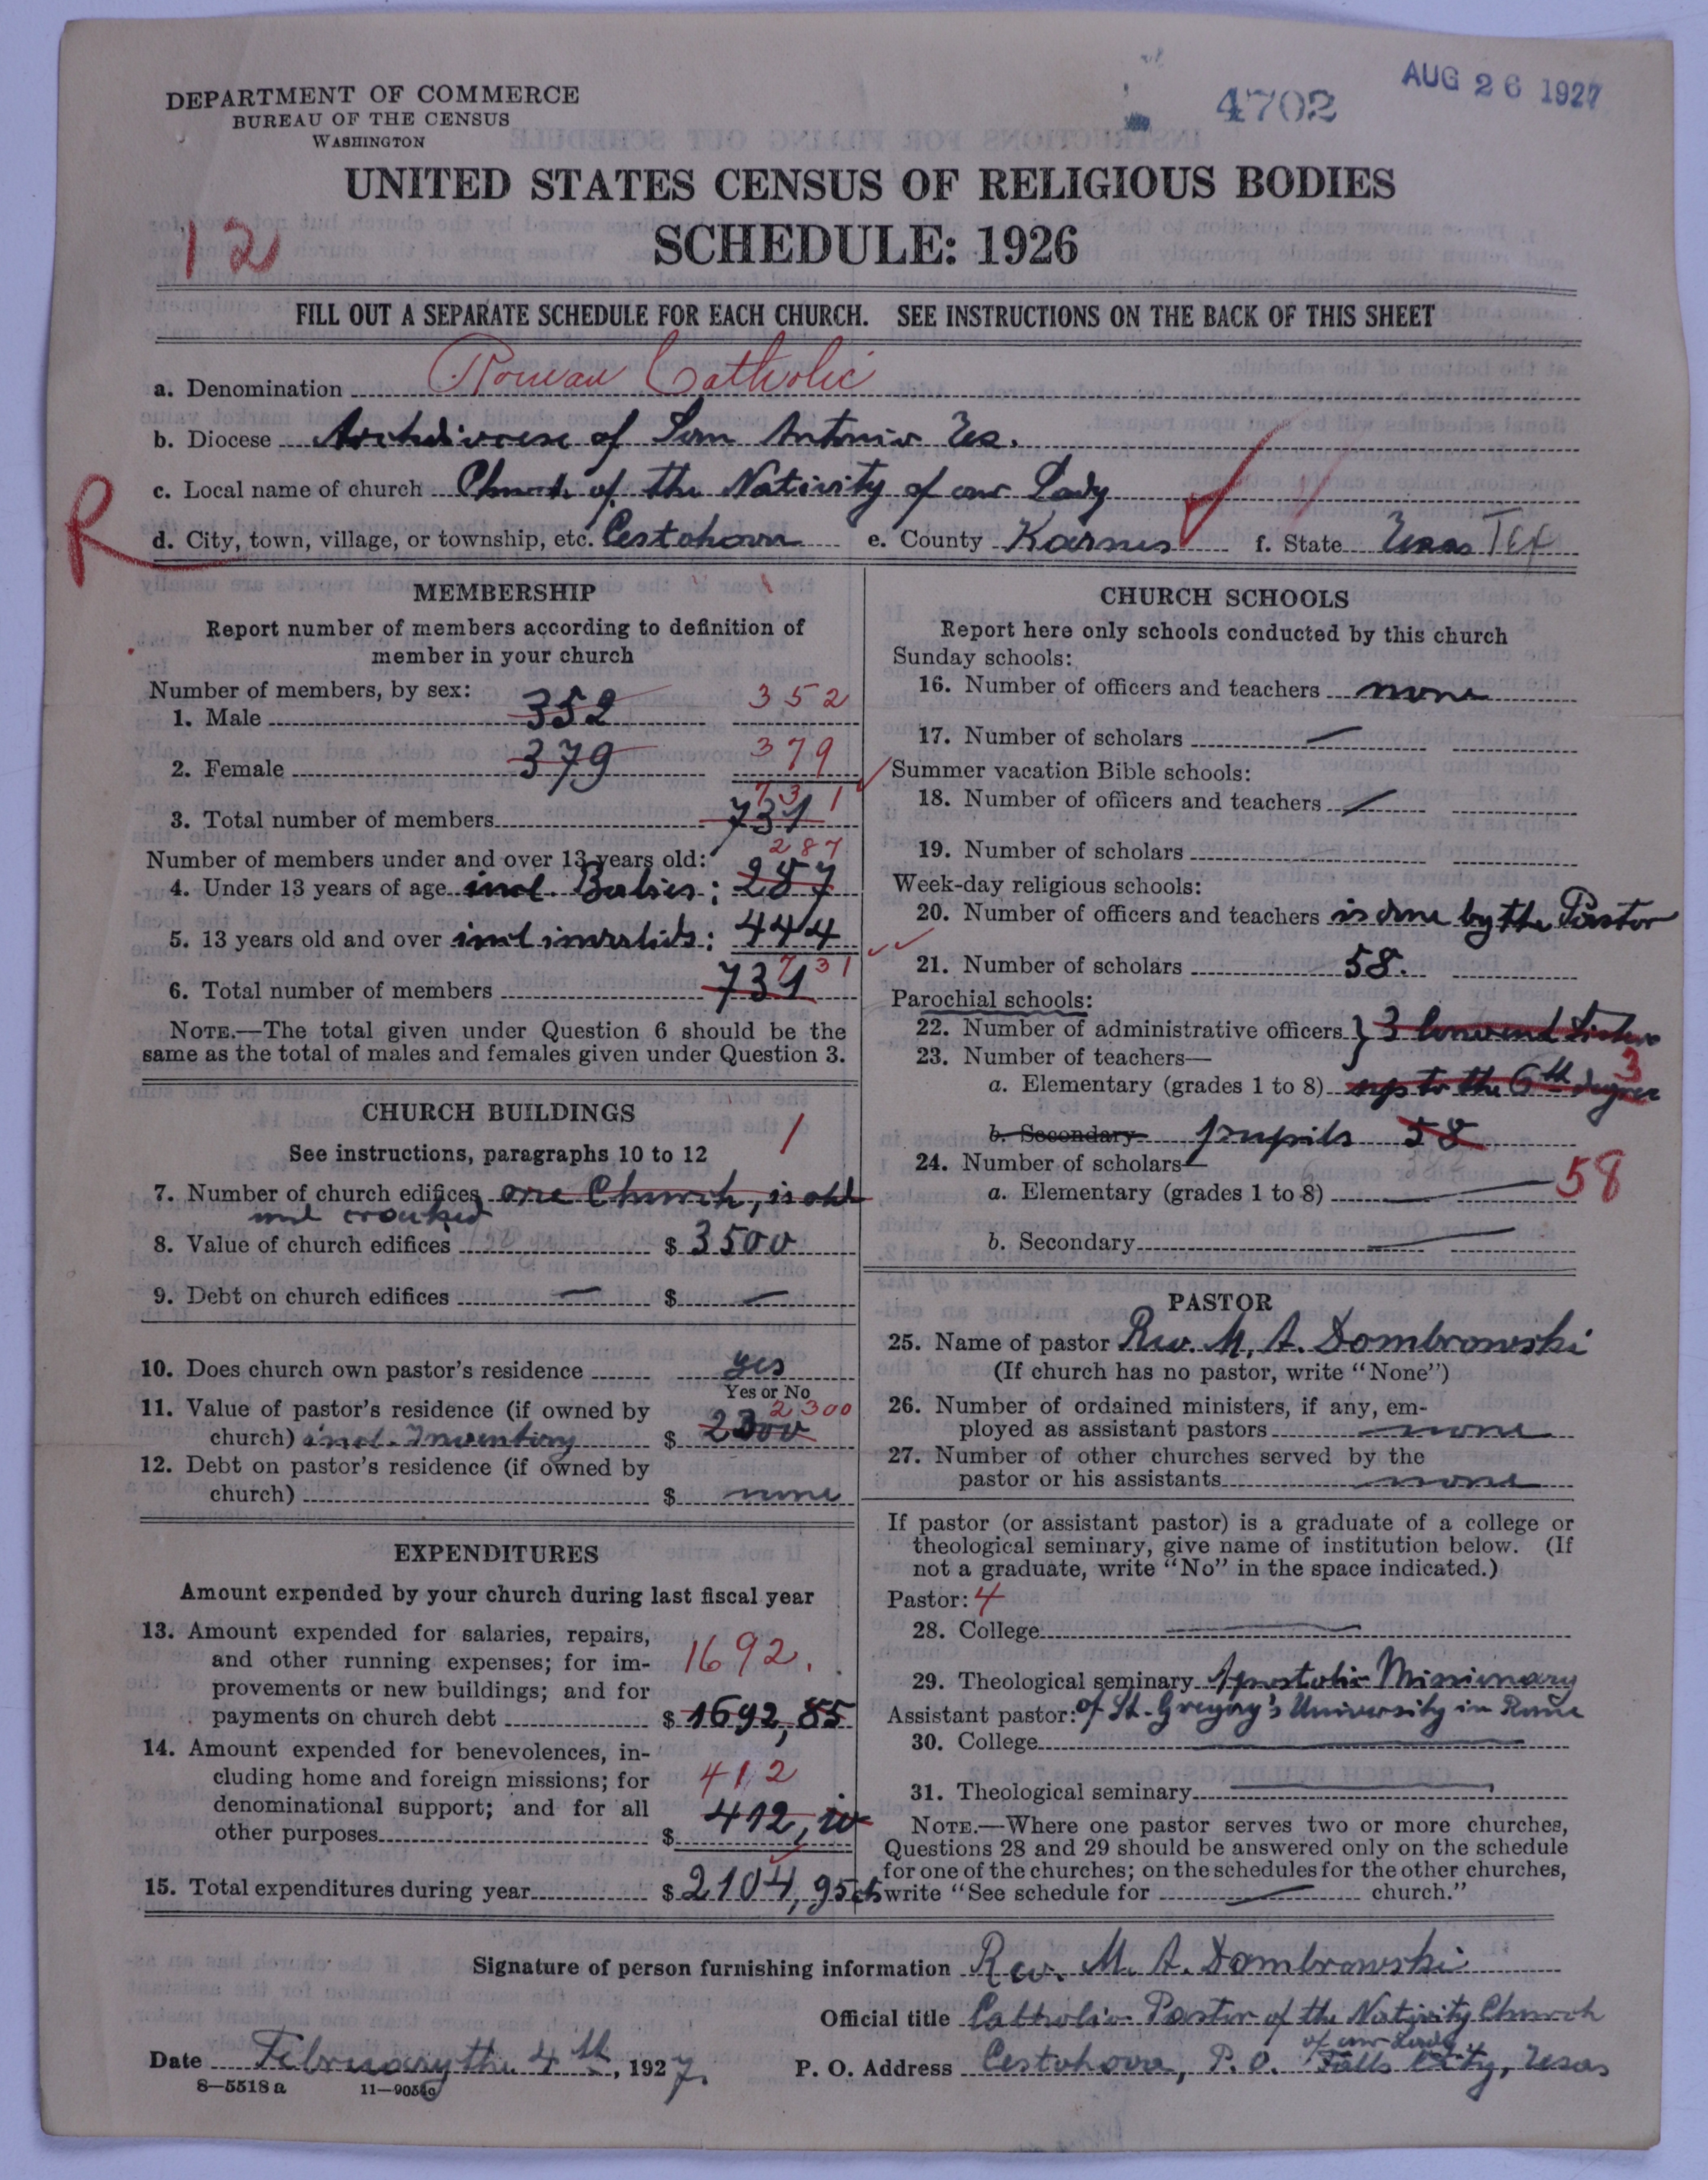 DEPARTMENT OF COMMERCE
BUREAU OF THE CENSUS
WASHINGTON
4702
AUG 26 1927
UNITED STATES CENSUS OF RELIGIOUS BODIES
SCHEDULE: 1926
12
FILL OUT A SEPARATE SCHEDULE FOR EACH CHURCH. SEE INSTRUCTIONS ON THE BACK OF THIS SHEET
a. Denomination Roman Catholic
b. Diocese Archdiocese of San Antonio Tex.
c. Local name of church Church of the Nativity of our Lady
R
d. City, town, village, or township, etc. Cestohowa e. County Karnes f. State Texas Tex
MEMBERSHIP
Report number of members according to definition of
member in your church
Number of members, by sex:
1. Male 352 352
2. Female 379 379
731
3. Total number of members 731
Number of members under and over 13 years old: 287
4. Under 13 years of age incl. Babies: 287
5. 13 years old and over incl invalids: 444
6. Total number of members 731 731
NOTE.—The total given under Question 6 should be the
same as the total of males and females given under Question 3.
CHURCH BUILDINGS
See instructions, paragraphs 10 to 12 1
7. Number of church edifices one Church, is old
and crooked
8. Value of church edifices $ 3500
9. Debt on church edifices — $ —
10. Does church own pastor's residence yes
Yes or No
11. Value of pastor's residence (if owned by 2300
church) incl. Inventory $ 2300
12. Debt on pastor's residence (if owned by
church) $ none
EXPENDITURES
Amount expended by your church during last fiscal year
13. Amount expended for salaries, repairs,
and other running expenses; for im- 1692.
provements or new buildings; and for
payments on church debt $ 1692,85
14. Amount expended for benevolences, in-
cluding home and foreign missions; for 412
denominational support; and for all
other purposes $ 412,10
15. Total expenditures during year $ 2104,95cts
CHURCH SCHOOLS
Report here only schools conducted by this church
Sunday schools:
16. Number of officers and teachers none
17. Number of scholars —
Summer vacation Bible schools:
18. Number of officers and teachers —
19. Number of scholars
Week-day religious schools:
20. Number of officers and teachers is done by the Pastor
21. Number of scholars 58.
Parochial schools:
22. Number of administrative officers } 3 Convend Sisters
23. Number of teachers— 3
a. Elementary (grades 1 to 8) up to the 6th degree
b. Secondary pupils 58
24. Number of scholars—
a. Elementary (grades 1 to 8) — 58
b. Secondary —
PASTOR
25. Name of pastor Rev. M. A. Dombrowski
(If church has no pastor, write "None")
26. Number of ordained ministers, if any, em-
ployed as assistant pastors none
27. Number of other churches served by the
pastor or his assistants none
If pastor (or assistant pastor) is a graduate of a college or
theological seminary, give name of institution below. (If
not a graduate, write "No" in the space indicated.)
Pastor: 4
28. College —
29. Theological seminary Apostolic Missionary
Assistant pastor: of St. Gregory's University in Rome
30. College —
31. Theological seminary —
NOTE.—Where one pastor serves two or more churches,
Questions 28 and 29 should be answered only on the schedule
for one of the churches; on the schedules for the other churches,
write "See schedule for — church."
Signature of person furnishing information Rev. M. A. Dombrowski
Official title Catholic Pastor of the Nativity Church
of our Lady
Date February the 4th, 1927. P. O. Address Cestohowa, P.O. Falls City, Texas
8—5518 a 11—9054a